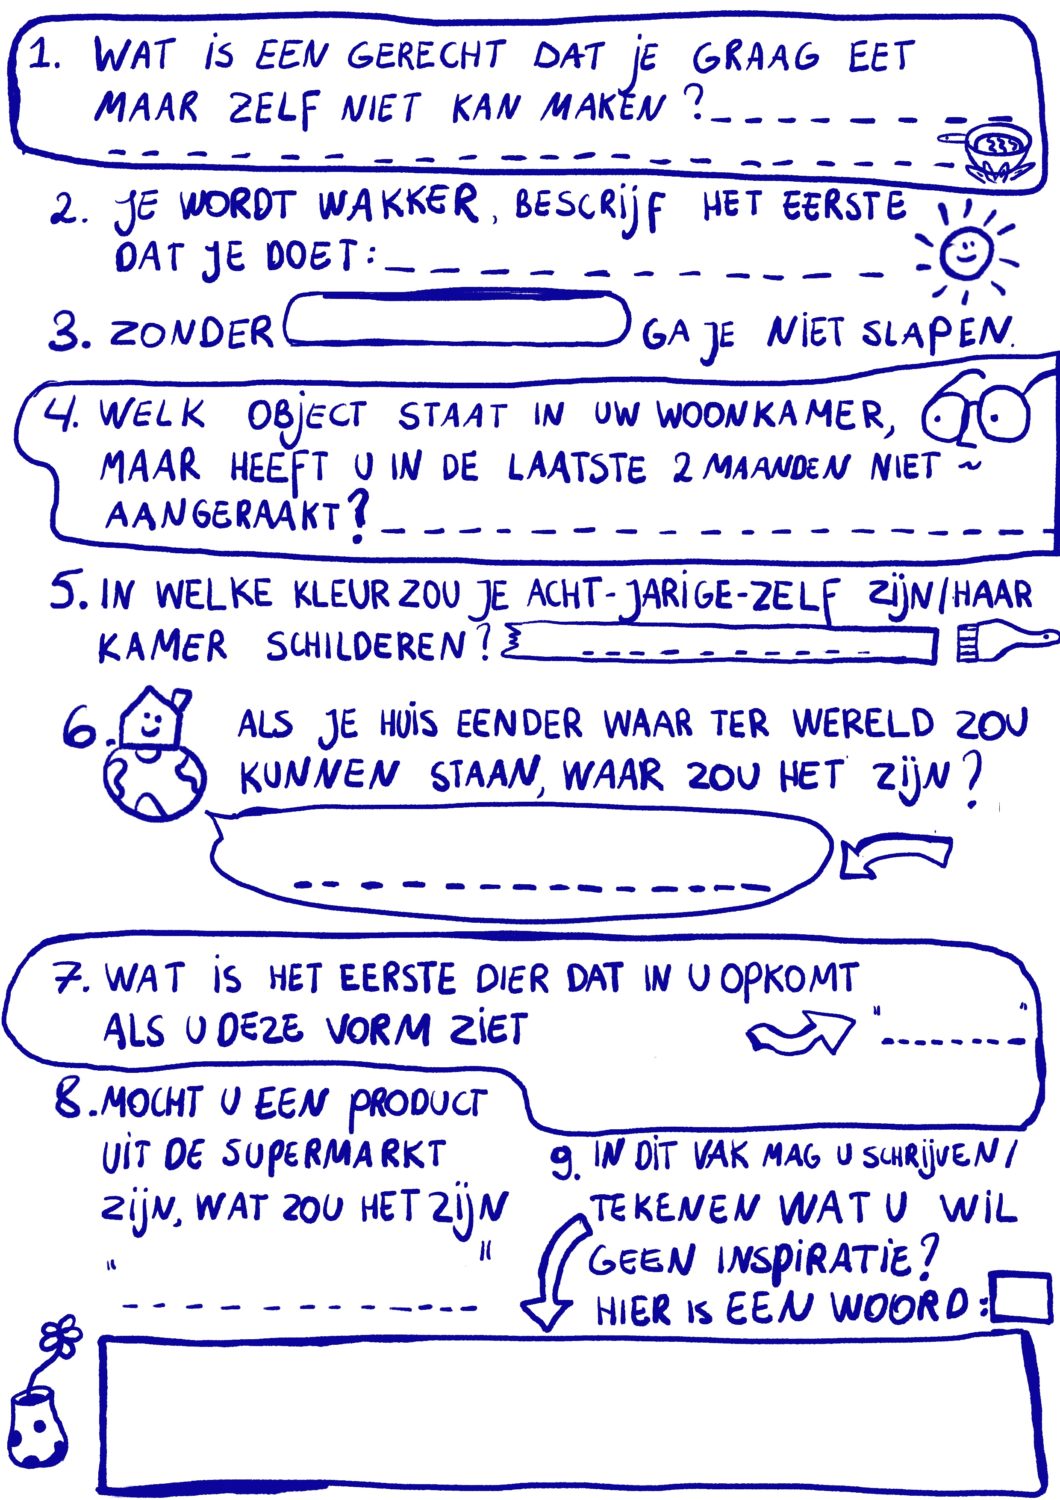 1. WAT iS EEN GERECHT DAT jE GRAAG EET
MAAR ZELF NIET KAN MAKEN?
2. JE WORDT WAKKER, BESCRijF HET EERSTE
DAT JE DOET:
3. ZONDER GA JE NIET SLAPEN.
4. WELK OBjECT STAAT IN UW WOONKAMER,
MAAR HEEFT U IN DE LAATSTE 2 MAANDEN NIET ~
AANGERAAKT?
5. IN WELKE KLEUR ZOU JE ACHT-JARIGE-ZELF ZijN/HAAR
KAMER SCHILDEREN?
6. ALS JE HUIS EENDER WAAR TER WERELD ZOU
KUNNEN STAAN, WAAR ZOU HET ZijN?
7. WAT iS HET EERSTE DIER DAT IN U OPKOMT
ALS U DEZE VORM ZIET
" "
8. MOCHT U EEN PRODUCT
UIT DE SUPERMARKT
ZijN, WAT ZOU HET ZijN
" "
9. IN DIT VAK MAG U SCHRijVEN/
TEKENEN WAT U WIL
GEEN INSPIRATIE?
HIER IS EEN WOORD: